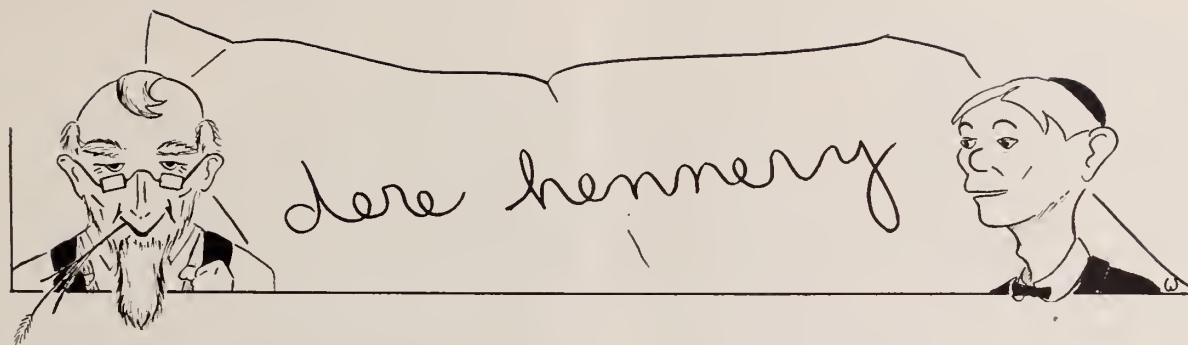 dere hennery